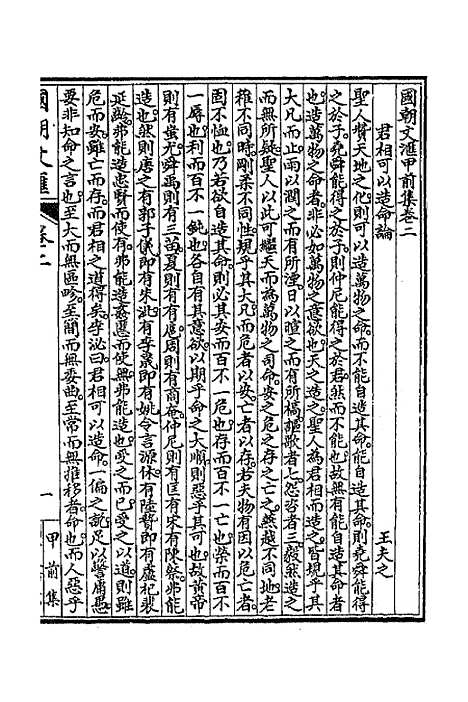 國朝文滙甲前集卷二
君相可以造命論
王夫之
聖人贊天地之化則可以造萬物之命而不能自造其命則堯舜能得
之於子堯舜能得之於子則仲尼能得之於君然而不能也故無有能自造其命者
也造萬物之命者非必如萬物之意欲也天之造之聖人為君相而造之皆規乎其
大凡而止雨以潤之而有所溼日以暄之而有所槁謳歌者七怨咨者三疑然造之
而無所疑聖人以此可繼天而為萬物之司命安之危之存之亡之燕越不同地老
稚不同時剛柔不同性規乎其大凡而危者以安亡者以存若夫物有因以危亡者
固不恤也乃若欲自造其命則必其安而百不一危也存而百不一亡也榮而百不
一辱也利而百不一鈍也各自有其意欲以期乎命之大順則惡乎其可也故黃帝
則有蚩尤舜禹則有三苗夏則有有扈周則有商奄仲尼則有匡有宋有陳蔡弗能
造也然則唐之有郭子儀即有朱泚有李晟即有姚令言源休有陸贄即有盧杞裴
延齡弗能造忠賢而使有弗能造姦慝而使無弗能造也受之而已受之以道則雖
危而安雖亡而存而君相之道得矣李泌曰君相可以造命一偏之說足以警庸愚
要非知命之言也至大而無區畛至簡而無委曲至常而無推移者命也而人惡乎
國朝文滙
卷二
一
甲前集